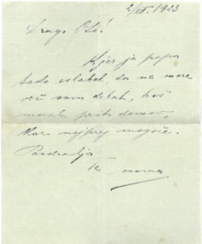 2/III. 1923
Drago Olé!
Ker ja papa
tado slabek, da ne more
več sam delati, boš
moral priti domov,
kar najprej mogoče.
Pozdravlja
te mama